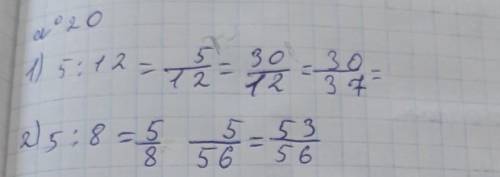 №20
1) 5:12 = 5/12 = 30/12 = 30/37 =
2) 5:8 = 5/8 5/56 = 53/56